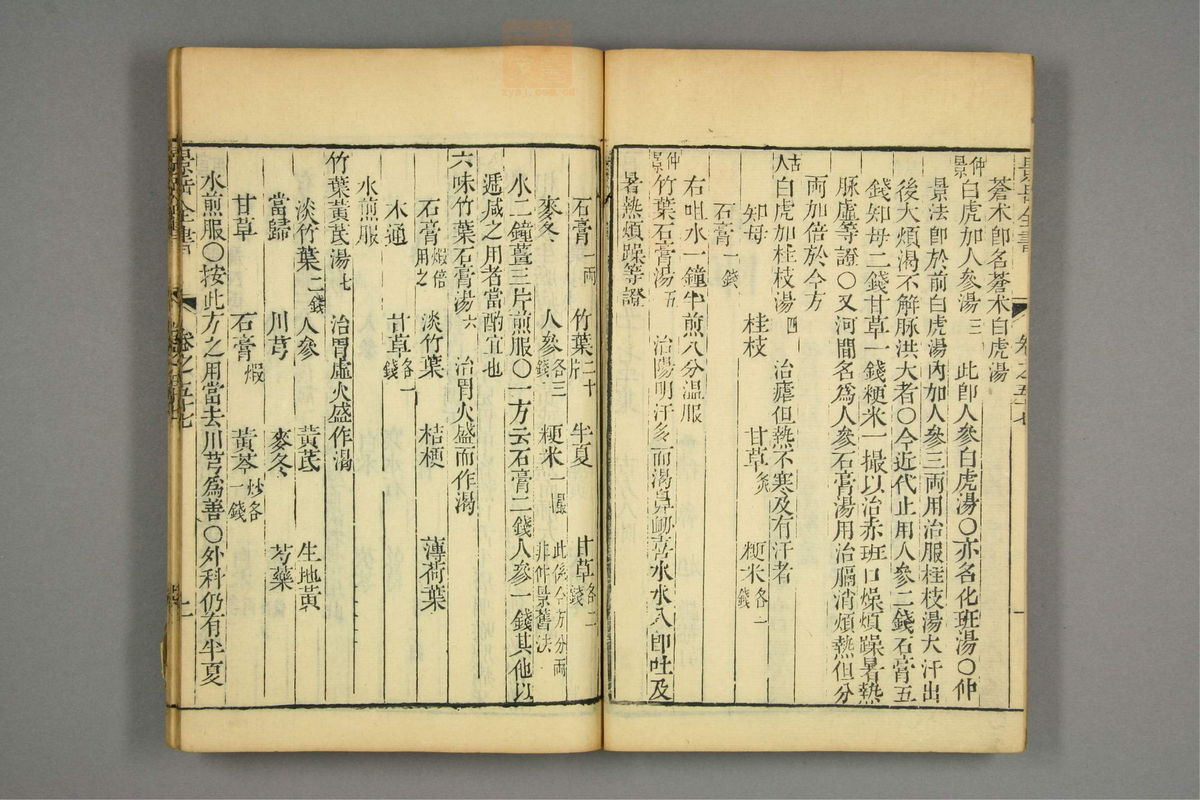 蒼朮卽名蒼朮白虎湯
仲景白虎加人參湯三 此卽人參白虎湯○亦名化班湯○仲
景法卽於前白虎湯內加人參三两用治服桂枝湯大汗出
後大煩渴不解脉洪大者○今近代止用人參二錢石膏五
錢知母二錢甘草一錢粳米一撮以治赤班口燥煩躁暑熱
脉虛等證○又河間名爲人參石膏湯用治膈消煩熱但分
两加倍於今方
古人白虎加桂枝湯四 治瘧但熱不寒及有汗者
知母 桂枝 甘草炙 粳米各一錢
石膏一錢
右咀水一鐘半煎八分温服
仲景竹葉石膏湯五 治陽明汗多而渴鼻衂喜水水入卽吐及
暑熱煩躁等證
石膏一两 竹葉二十片 半夏 甘草各二錢
麥冬 人參各三錢 粳米一撮 此係今方分两非仲景舊法
水二鐘薑三片煎服○一方云石膏二錢人參一錢其他以
遞减之用者當酌宜也
六味竹葉石膏湯六 治胃火盛而作渴
石膏煆倍用之 淡竹葉 桔梗 薄荷葉
木通 甘草各一錢
水煎服
竹葉黃芪湯七 治胃虛火盛作渴
淡竹葉二錢 人參 黃芪 生地黃
當歸 川芎 麥冬 芍藥
甘草 石膏煆 黃芩炒各一錢
水煎服○按此方之用當去川芎爲善○外科仍有半夏
景岳全書 卷之五十七